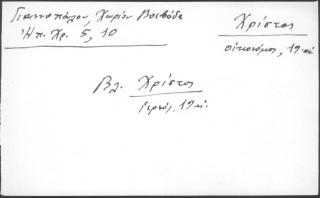 Γιαννοπούλου, Χωρίον Βοϊβόδα
Ἠπ. Χρ. 5, 10
Χρίστος
οἰκονόμος, 19 αἰ.
Βλ. Χρίστος
ἱερεύς, 19 αἰ.